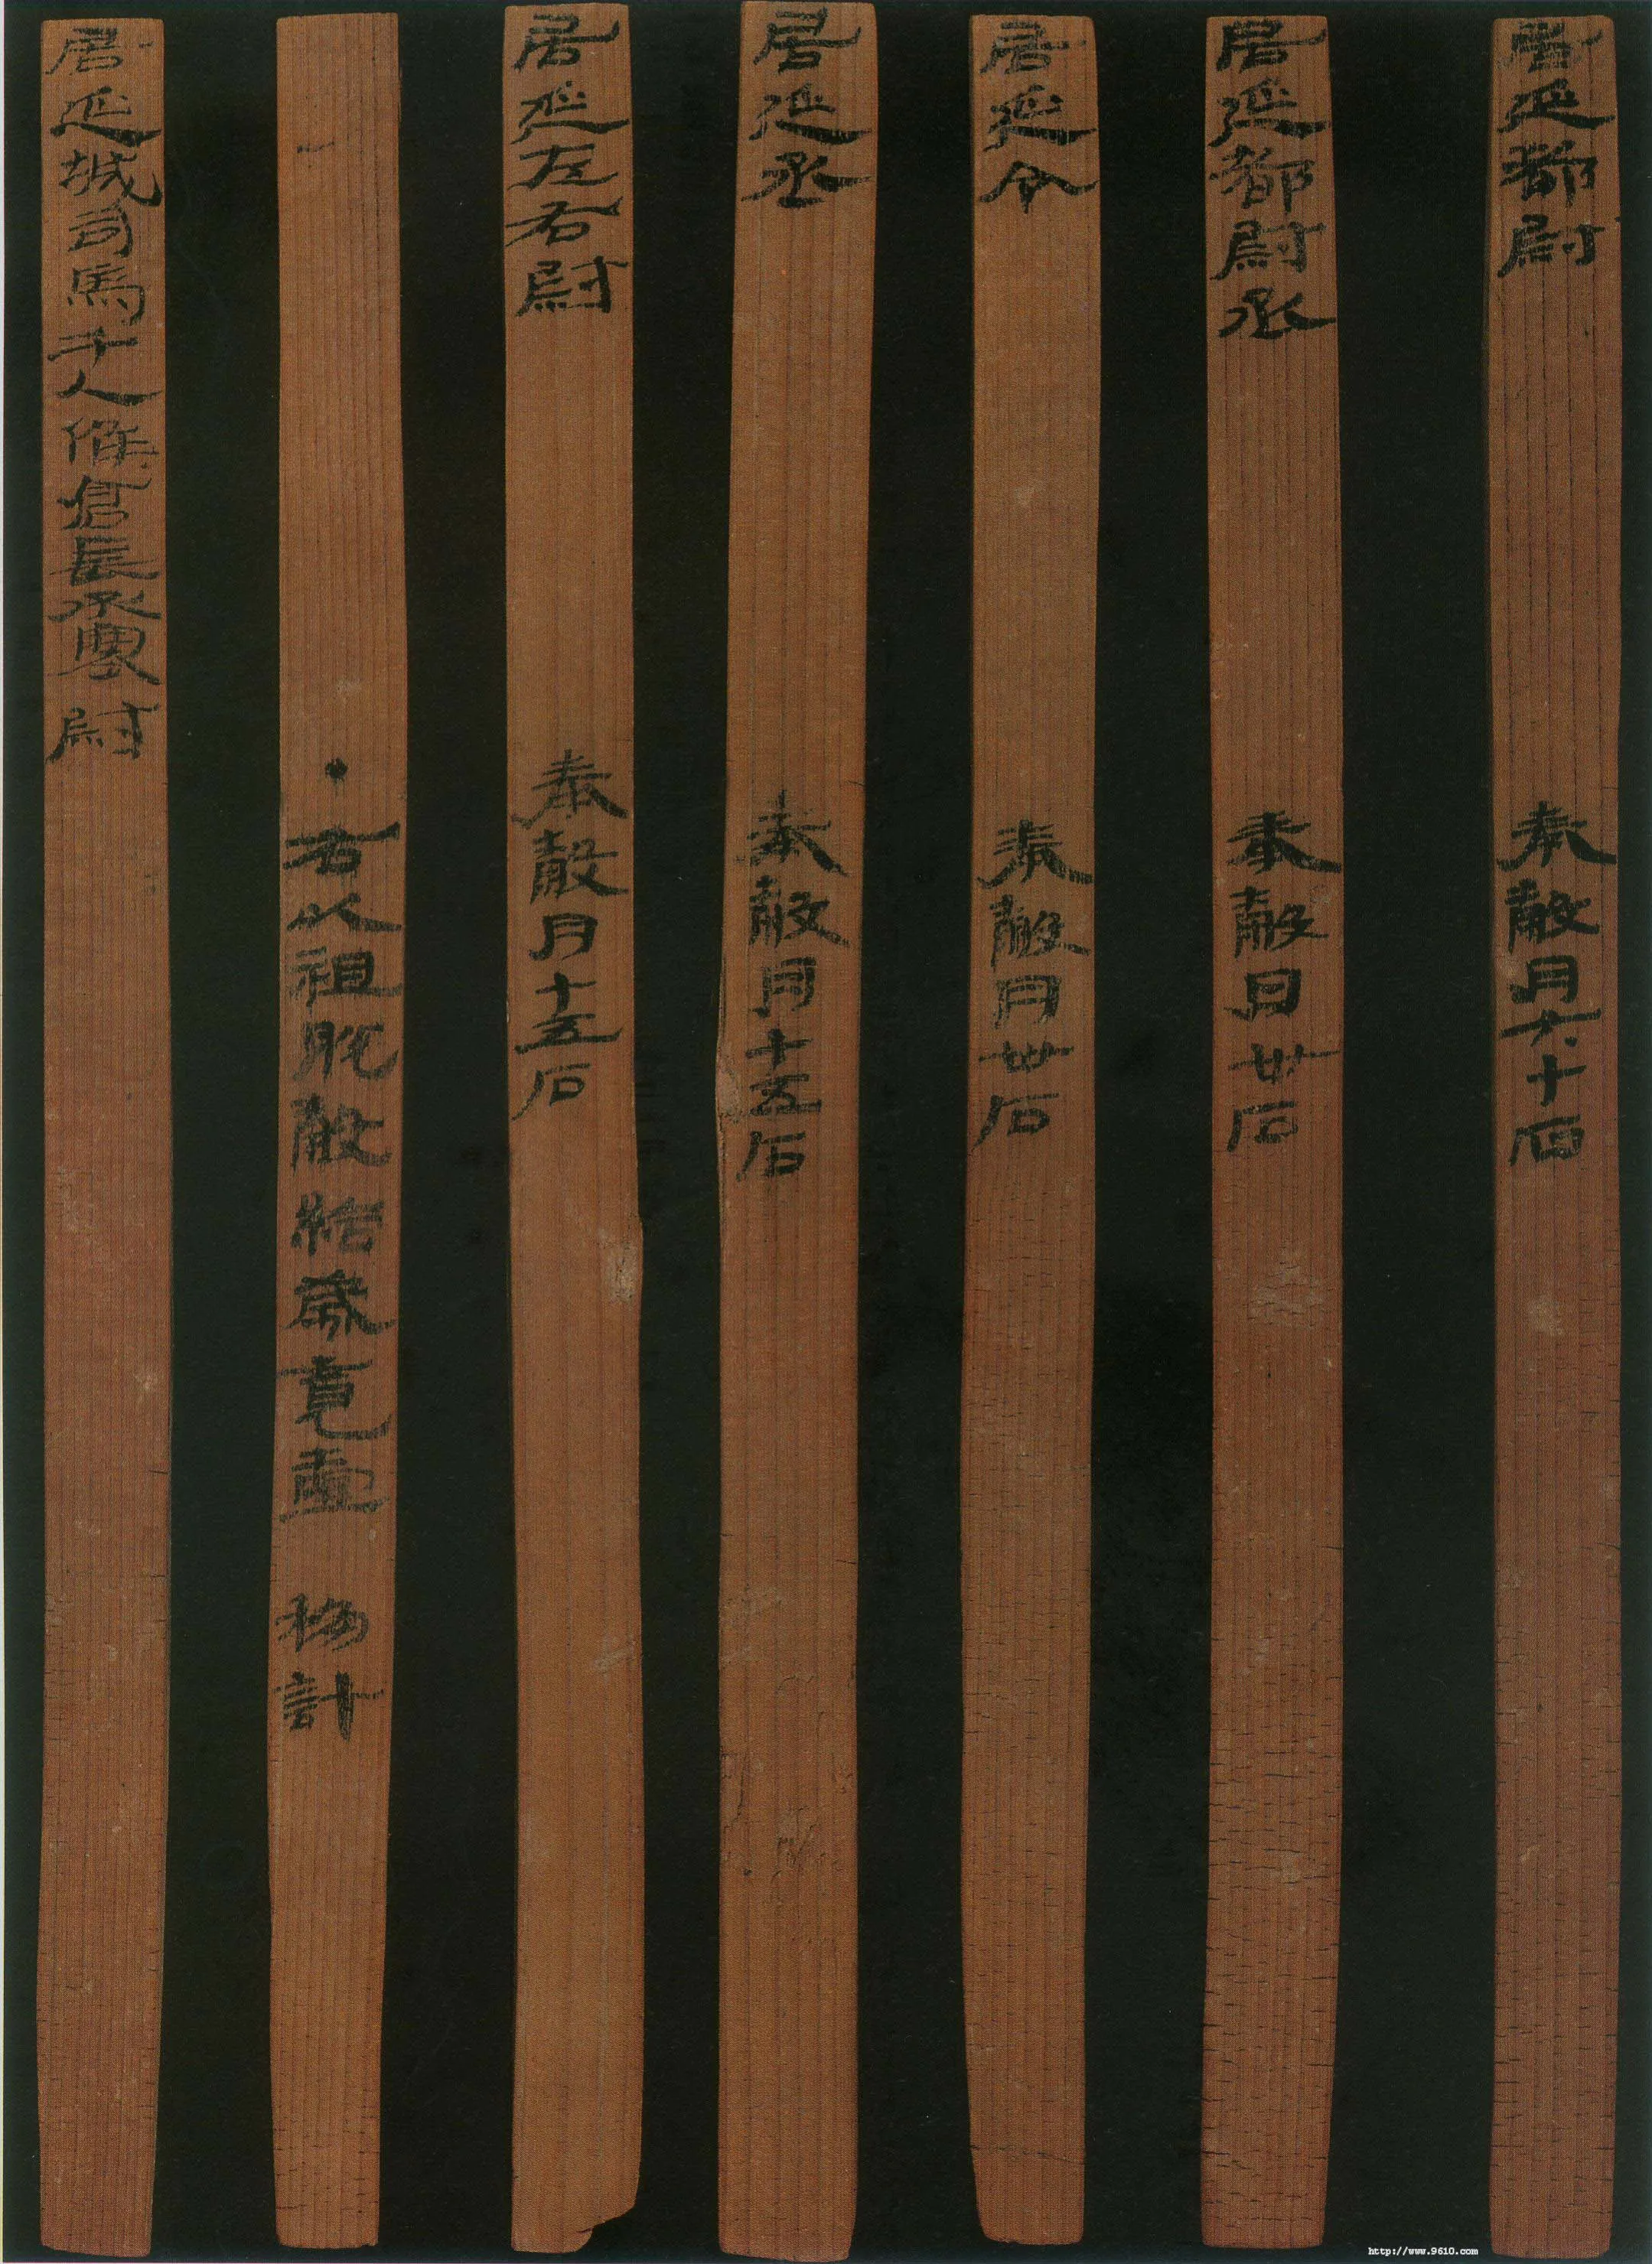 居延都尉 奉穀月六十石
居延都尉丞 奉穀月卅石
居延令 奉穀月卅石
居延丞 奉穀月十五石
居延左右尉 奉穀月十五石
・右以祖脫穀給歲竟壹 移計
居延城司馬千人候倉長丞塞尉
http://www.9610.com